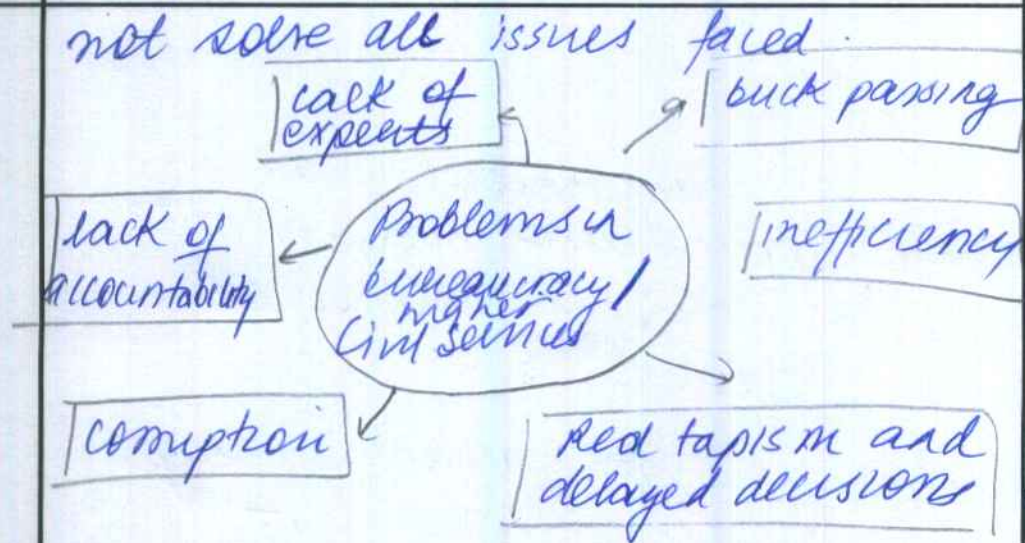 not solve all issues faced.
lack of
experts
buck passing
lack of
accountability
Problems in
bureaucracy/
higher
Civil Services
inefficiency
corruption
Red tapism and
delayed decisions